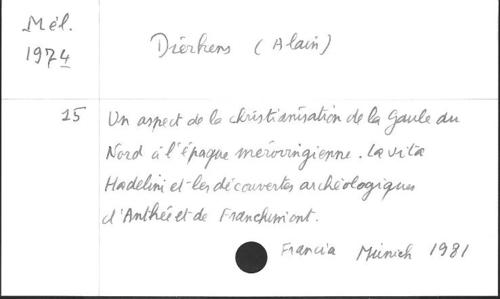 Mél.
1974
Dierkens (Alain)
15
Un aspect de la christianisation de la Gaule du
Nord à l'époque mérovingienne. La vita
Hadelini et les découvertes archéologiques
d'Anthée et de Franchimont.
Francia Münich 1981